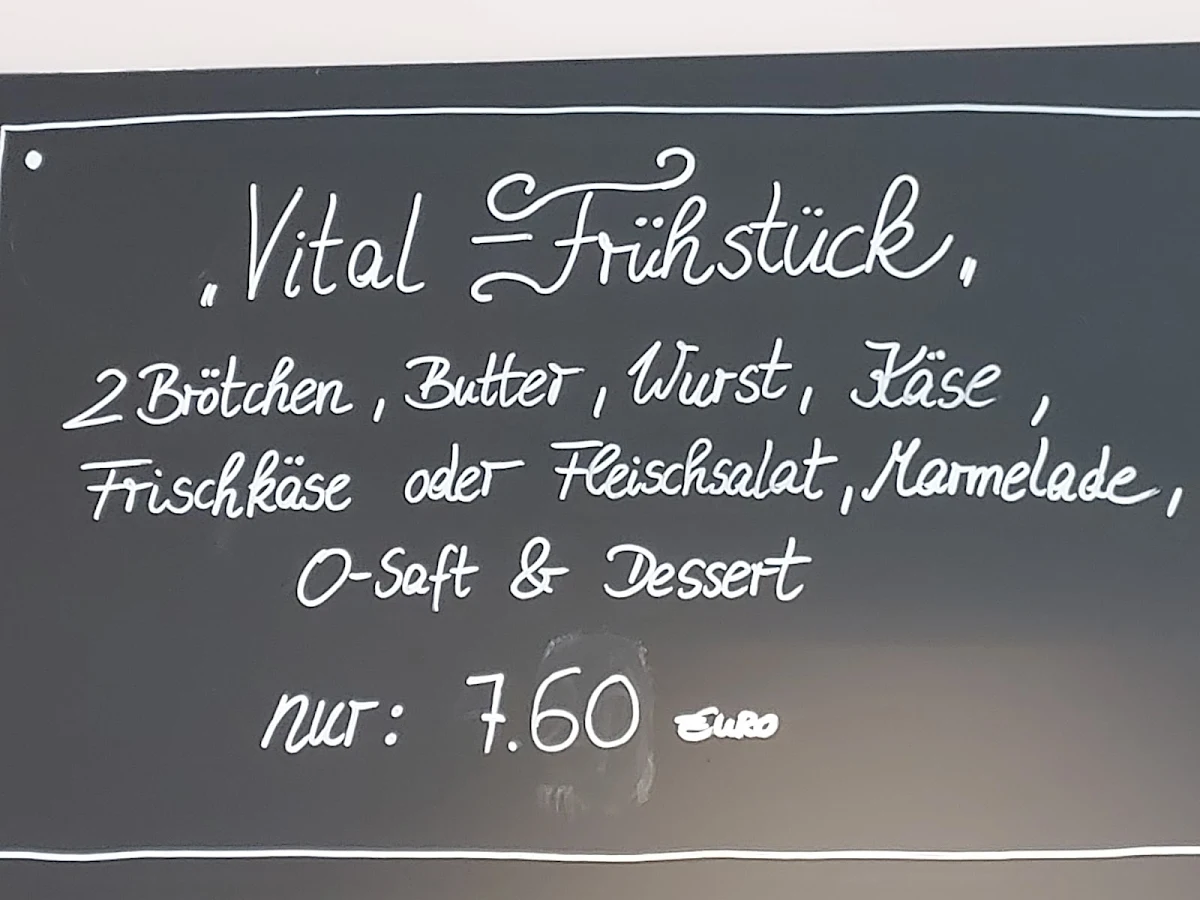 „Vital - Frühstück„
2 Brötchen, Butter, Wurst, Käse,
Frischkäse oder Fleischsalat, Marmelade,
O-Saft & Dessert
nur: 7.60 EURO